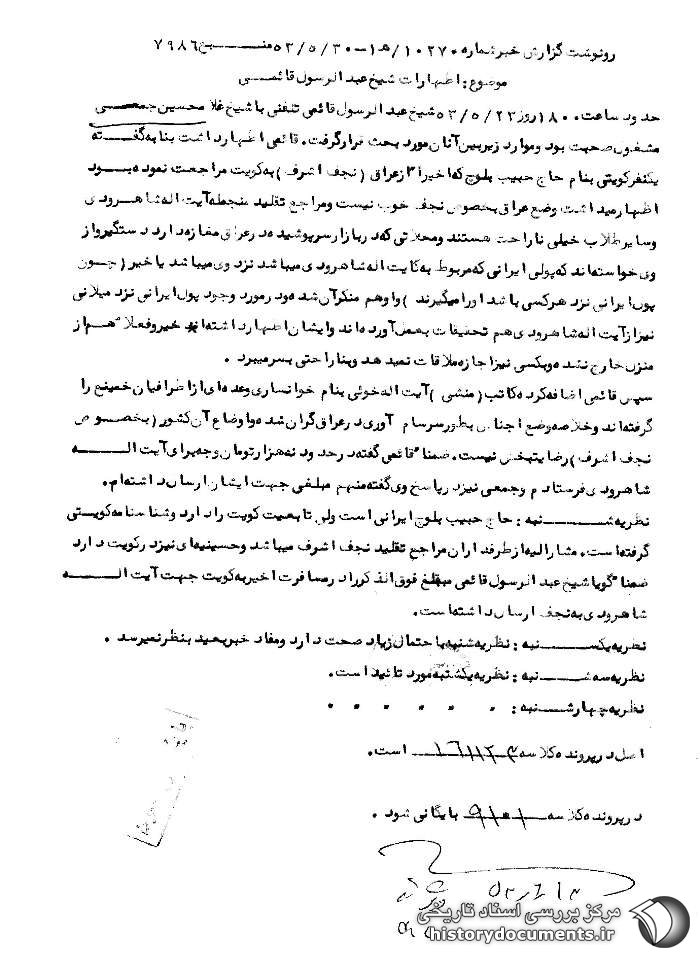 رونوشت گزارش خبر شماره ۱۰۲۷۰/ ۱ه‍ – ۵۳/۵/۳۰ منبع ۷۹۸۶
موضوع : اظهارات شیخ عبد الرسول قائمی
حدود ساعت ۱۸۰۰ روز ۵۳/۵/۲۳ شیخ عبد الرسول قائمی تلفنی با شیخ غلا محسین جمعی
مشغول صحبت بود و موارد زیر بین آنان مورد بحث قرار گرفت . قائمی اظهار داشت بنا به گفته
یکنفر کویتی بنام حاج حبیب بلوچ که اخیرا" از عراق ( نجف اشرف ) به کویت مراجعت نموده بود
اظهار میداشت وضع عراق بخصوص نجف خوب نیست و مراجع تقلید منجمله آیت اله شاهرودی
و سایر طلاب خیلی ناراحت هستند و محلاتی که در بازار سرپوشیده در عراق مغازه دارد دستگیر و از
وی خواسته اند که پولی ایرانی که مربوط به آیت اله شاهرودی میباشد نزد وی میباشد یا خیر ( چون
پول ایرانی نزد هر کسی باشد او را میگیرند ) و او هم منکر آن شده و در مورد وجود پول ایرانی نزد میلانی
نیز از آیت اله شاهرودی هم تحقیقات بعمل آورده اند و ایشان اظهار داشته اند خیر و فعلا" هم از
منزل خارج نشده و بکسی نیز اجازه ملاقات نمیدهد و بناراحتی بسر میبرد .
سپس قائمی اضافه کرده کاتب ( منشی ) آیت اله خوئی بنام خوانساری و عده ای از اطرافیان خمینی را
گرفته اند و خلاصه وضع اجناس بطور سرسام آوری در عراق گران شده و اوضاع آن کشور ( بخصوص
نجف اشرف ) رضایتبخش نیست . ضمنا" قائمی گفته در حدود نه هزار تومان وجه برای آیت الـــه
شاهرودی فرستادم و جمعی نیز در پاسخ وی گفته منهم مبلغی جهت ایشان ارسال داشته ام .
نظریه شـــنبه : حاج حبیب بلوچ ایرانی است ولی تابعیت کویت را دارد و شناسنامه کویتی
گرفته است . مشارالیه از طرفداران مراجع تقلید نجف اشرف میباشد و حسینیه ای نیز در کویت دارد
ضمنا" گویا شیخ عبد الرسول قائمی مبلغ فوق الذکر را در مسافرت اخیر به کویت جهت آیت الـــه
شاهرودی به نجف ارسال داشته است .
نظریه یکـــشنبه : نظریه شنبه با احتمال زیاد صحت دارد و مفاد خبر بعید بنظر نمیرسد .
نظریه سه شـــنبه : نظریه یکشنبه مورد تائید است .
نظریه چهار شـــنبه : . . . . . .
اصل در پرونده کلاسه ۱۶۱۱۲۳ است .
در پرونده کلاسه ۹۱۰۱ بایگانی شود .
مرکز بررسی اسناد تاریخی
historydocuments.ir